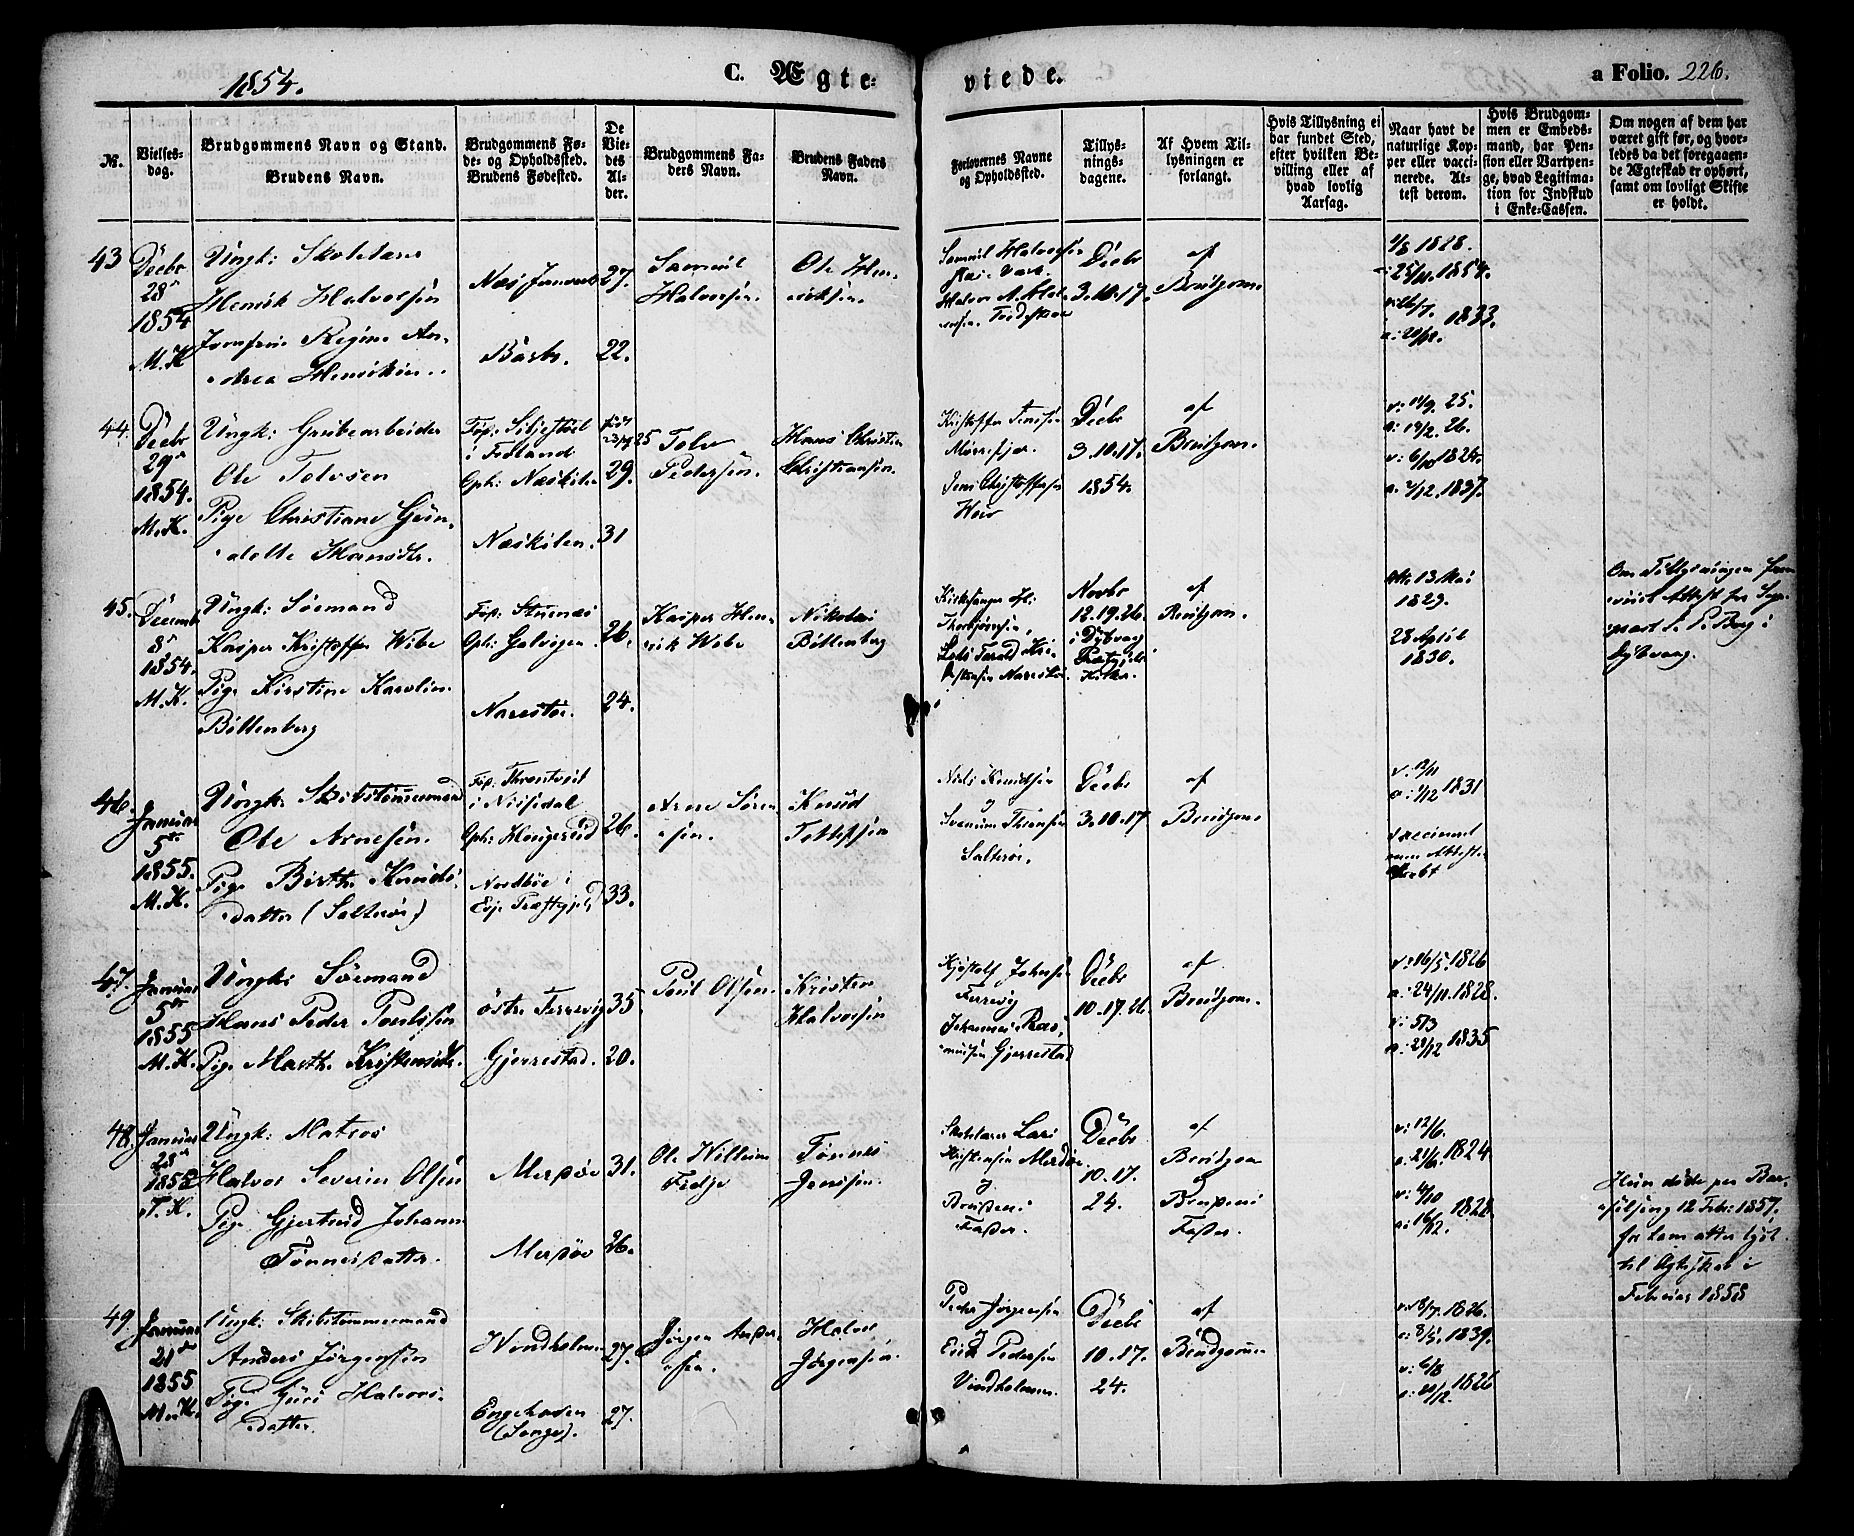 1854.
C. Ægte-
viede.
a Folio. 226.
№.
Vielses-
dag.
Brudgommens Navn og Stand.
Brudens Navn.
Brudgommens Fø-
de- og Opholdssted.
Brudens Fødested.
De
Vie-
des
Al-
der.
Brudgommens Fa-
ders Navn.
Brudens Faders
Navn.
Forlovernes Navne
og Opholdssted.
Tillys-
nings-
dagene.
Af Hvem Til-
lysningen er
forlangt.
Hvis Tillysning ei
har fundet Sted,
efter hvilken Be-
villing eller af
hvad lovlig
Aarsag.
Naar havt de
naturlige Kop-
per eller vacci-
nerede. At-
test derom.
Hvis Brudgom-
men er Embeds-
mand, har Pen-
sion eller Vartpen-
ge, hvad Legitima-
tion for Indskud
i Enke-Cassen.
Om nogen af dem har
været gift før, og hvor-
ledes da det foregaaen-
de Ægteskab er ophørt,
samt om lovligt Skifte
er holdt.
43
Decbr
28
1854
M.K
Ungk: Skolelærer
Henrik Halvorsen
Jomfru Regine An-
drea Henriksen.
27.
Barbo.
22.
Samuel
Halvorsen.
Ole Hen-
riksen.
Samuel Halvorsen
Decbr
3. 10. 17.
af
Brudgom.
1/8 1828.
25/11 1854.
1833.
44.
Decbr
29
1854.
M.K.
Ungk: Grubearbeider
Ole Tolvsen
Pige Christiane Gun-
delle Hansdtr.
i Froland
Oph: Næskilen
29.
Næskilen.
31
Tolv
Pedersen.
Hans Christen
Christensen.
Decbr
3. 10. 17.
1854.
af
Brudgom.
v: 11/9. 25.
a: 19/2. 26.
v: 6/10 1824.
a: 7/12. 1837.
45.
Decemb
8
1854.
M.K.
Ungk: Sømand
Kasper Kristoffer Wibe
Pige Kirstine Karolin
Böttenberg
26.
Narestø.
24.
Kasper Hen-
rik Wibe
Nikolai
Böttenberg
Kirkesanger
Novbr
12. 19. 26
i Dybvag
Præstegjelds
Kirke.
af
Brudgom.
13 Mai
1829.
28 April
1830.
Om Tillysningen frem-
vist Attest fra Sogne-
præst
Dybvaag.
46.
Januar
5te
1855.
M.K.
Ungk: Skibstømmermand
Ole Arnesen.
Pige Birthe Knuds-
datter (Salterøe)
i Nissedal
26.
Nordbøe i
Evje Præstegjeld
33.
Arne Søren-
sen.
Knud
Tellefsen
Niels Knudsen
og
Salterøe.
Decbr
3. 10. 17
af
Brudgom
v: 12/11
a: 1/12 1831
47.
Januar
5te
1855
M.K.
Ungk: Sømand
Hans Peder Poulsen
Pige Marthe Kristensdtr.
østre Ferrevig
35
Gjerrestad.
20.
Poul Olsen
Kristen
Halvorsen
Ferrevig
Johannes Ras-
mussen Gjerrestad
Decbr
10. 17. 26.
af
Brudgom.
v: 16/5. 1826
a: 24/11. 1828.
v: 5/3
a: 28/12 1835
48.
Januar
28
1855
T.K.
Ungk: Matros
Halvor Severin Olsen
Pige Gjertrud Johann
Tønnesdatter.
Merdøe
31.
Merdøe
26.
Ole Willum
Tønnes
Jenssen.
Skolelærer Lars
Kristensen Merdøe.
og
Brudens
Fader.
Decbr
10. 17.
24.
af
Brudgom
og
Brudens
Fader.
v: 12/6.
a: 21/6. 1824
v: 4/10
a: 16/12. 1828.
Hun døde per Bar-
selseng 12 Febr: 1857.
for ham atter lyst
til Ægteskab i
Februar 1858
49.
Januar
21de
1855
M.K.
Ungk: Skibstømmermand
Anders Jørgensen
Pige Guri Halvors-
datter.
Vindholmen
27.
Engehaven
(Songe).
27.
Jørgen Ander-
sen.
Halvor
Jørgensen.
Peder Jørgensen
og
Erik Pedersen
Vindholmen.
Decbr
10. 17.
24.
af
Brudgommen
v: 18/7. 1826.
a: 8/5. 1839.
v: 6/8
a: 20/12. 1826